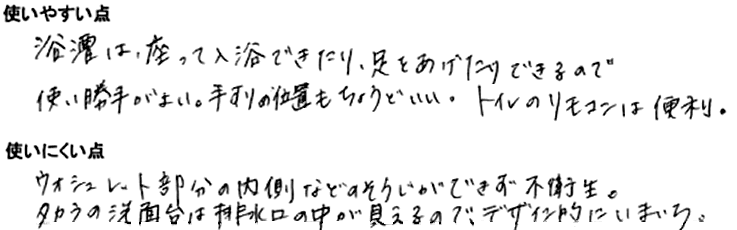 使いやすい点
浴槽は、座って入浴できたり、足をあげたりできるので
使い勝手がよい。手すりの位置もちょうどいい。トイレのリモコンは便利。
使いにくい点
ウォシュレット部分の内側などのそうじができず不衛生。
タカラの洗面台は排水口の中が見えるので、デザイン的にいまいち。